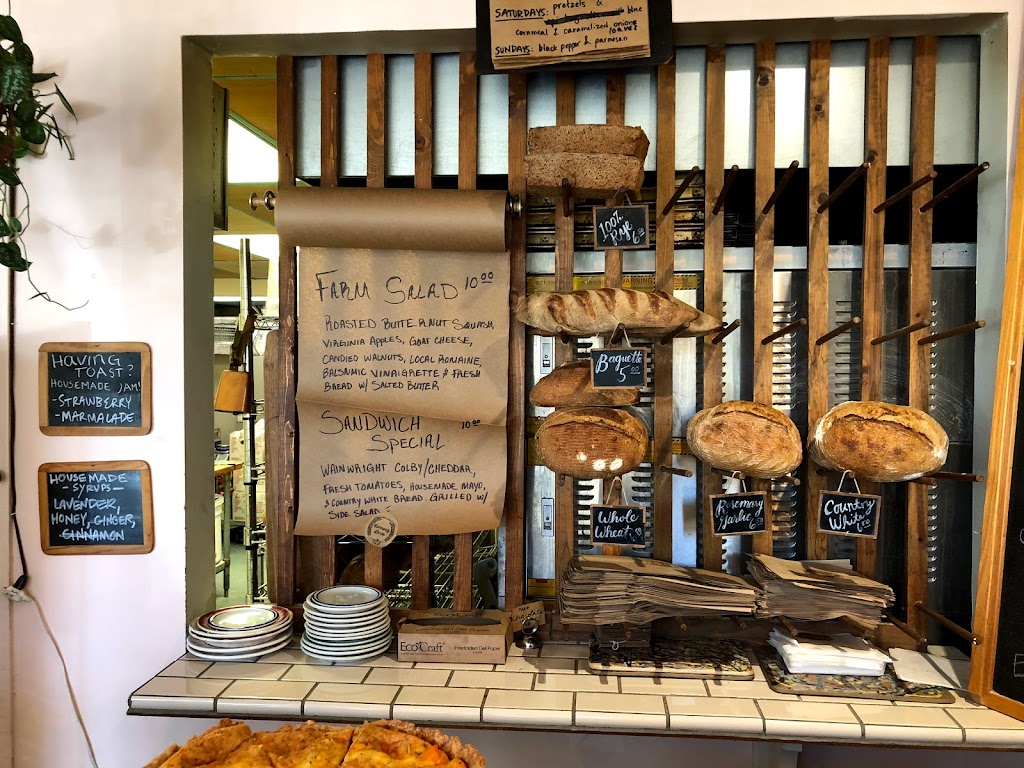 SATURDAYS: pretzels &
blue
cornmeal & caramelized onion
loaves
SUNDAYS: black pepper & parmesan
FARM SALAD 10.00
ROASTED BUTTERNUT SQUASH,
VIRGINIA APPLES, GOAT CHEESE,
CANDIED WALNUTS, LOCAL ROMAINE,
BALSAMIC VINAIGRETTE & FRESH
BREAD W/ SALTED BUTTER
SANDWICH 10.00
SPECIAL
WAINWRIGHT COLBY/CHEDDAR,
FRESH TOMATOES, HOUSEMADE MAYO,
& COUNTRY WHITE BREAD GRILLED W/
SIDE SALAD
HAVING
TOAST?
HOUSEMADE JAM!
-STRAWBERRY
-MARMALADE
HOUSEMADE
-SYRUPS-
LAVENDER,
HONEY, GINGER,
CINNAMON
100%
Rye
Baguette
5.00
Whole
Wheat
Rosemary
Garlic
Country
White
EcoCraft
Interfolded Deli Paper
WARNING